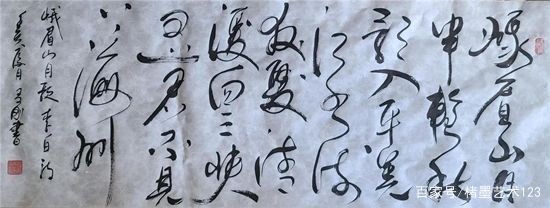 峨眉山月
半輪秋
影入平羌
江水流
夜發清
溪向三峽
思君不見
下渝州
峨眉山月歌 李白詩
夏月 剛書
百家号/楮墨艺术123